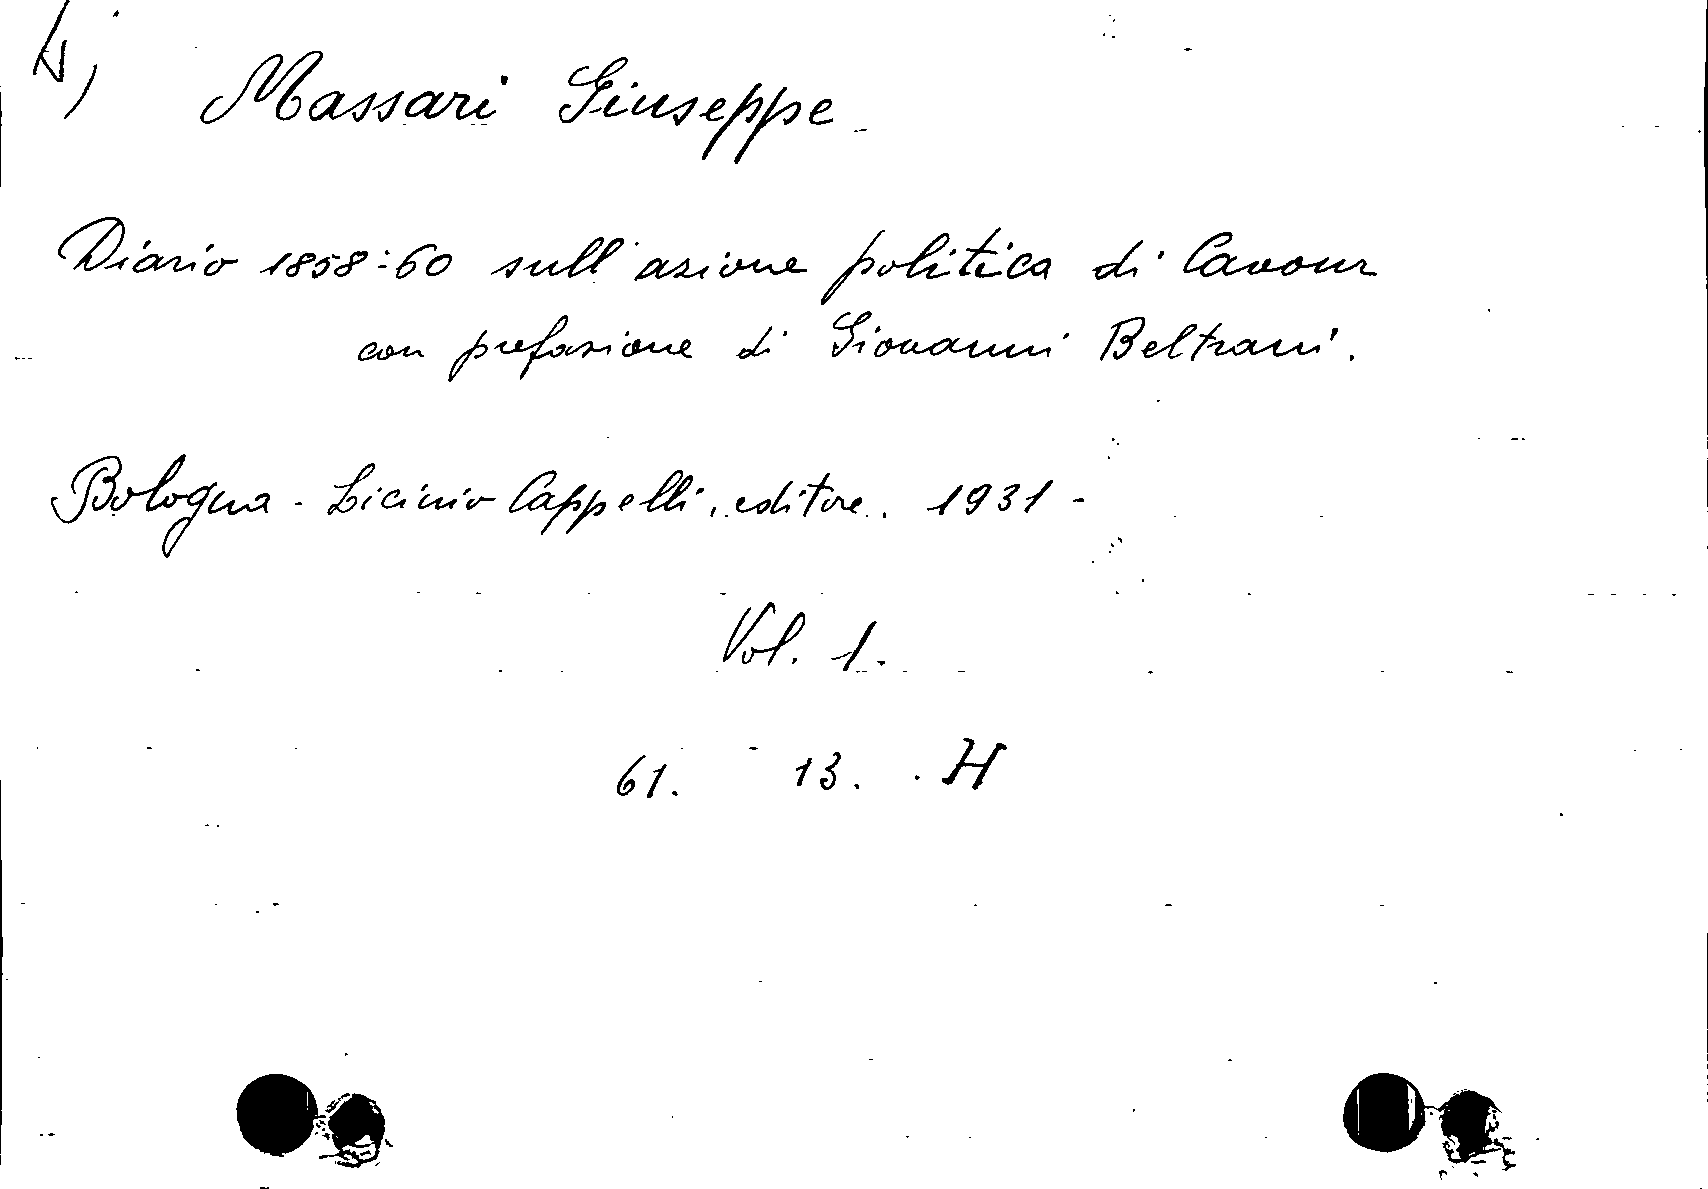 Massari Giuseppe
Diario 1858-60 sull'azione politica di Cavour
con prefazione di Giovanni Beltrani.
Bologna - Licinio Cappelli, editore. 1931 -
Vol. 1.
61. 13. H